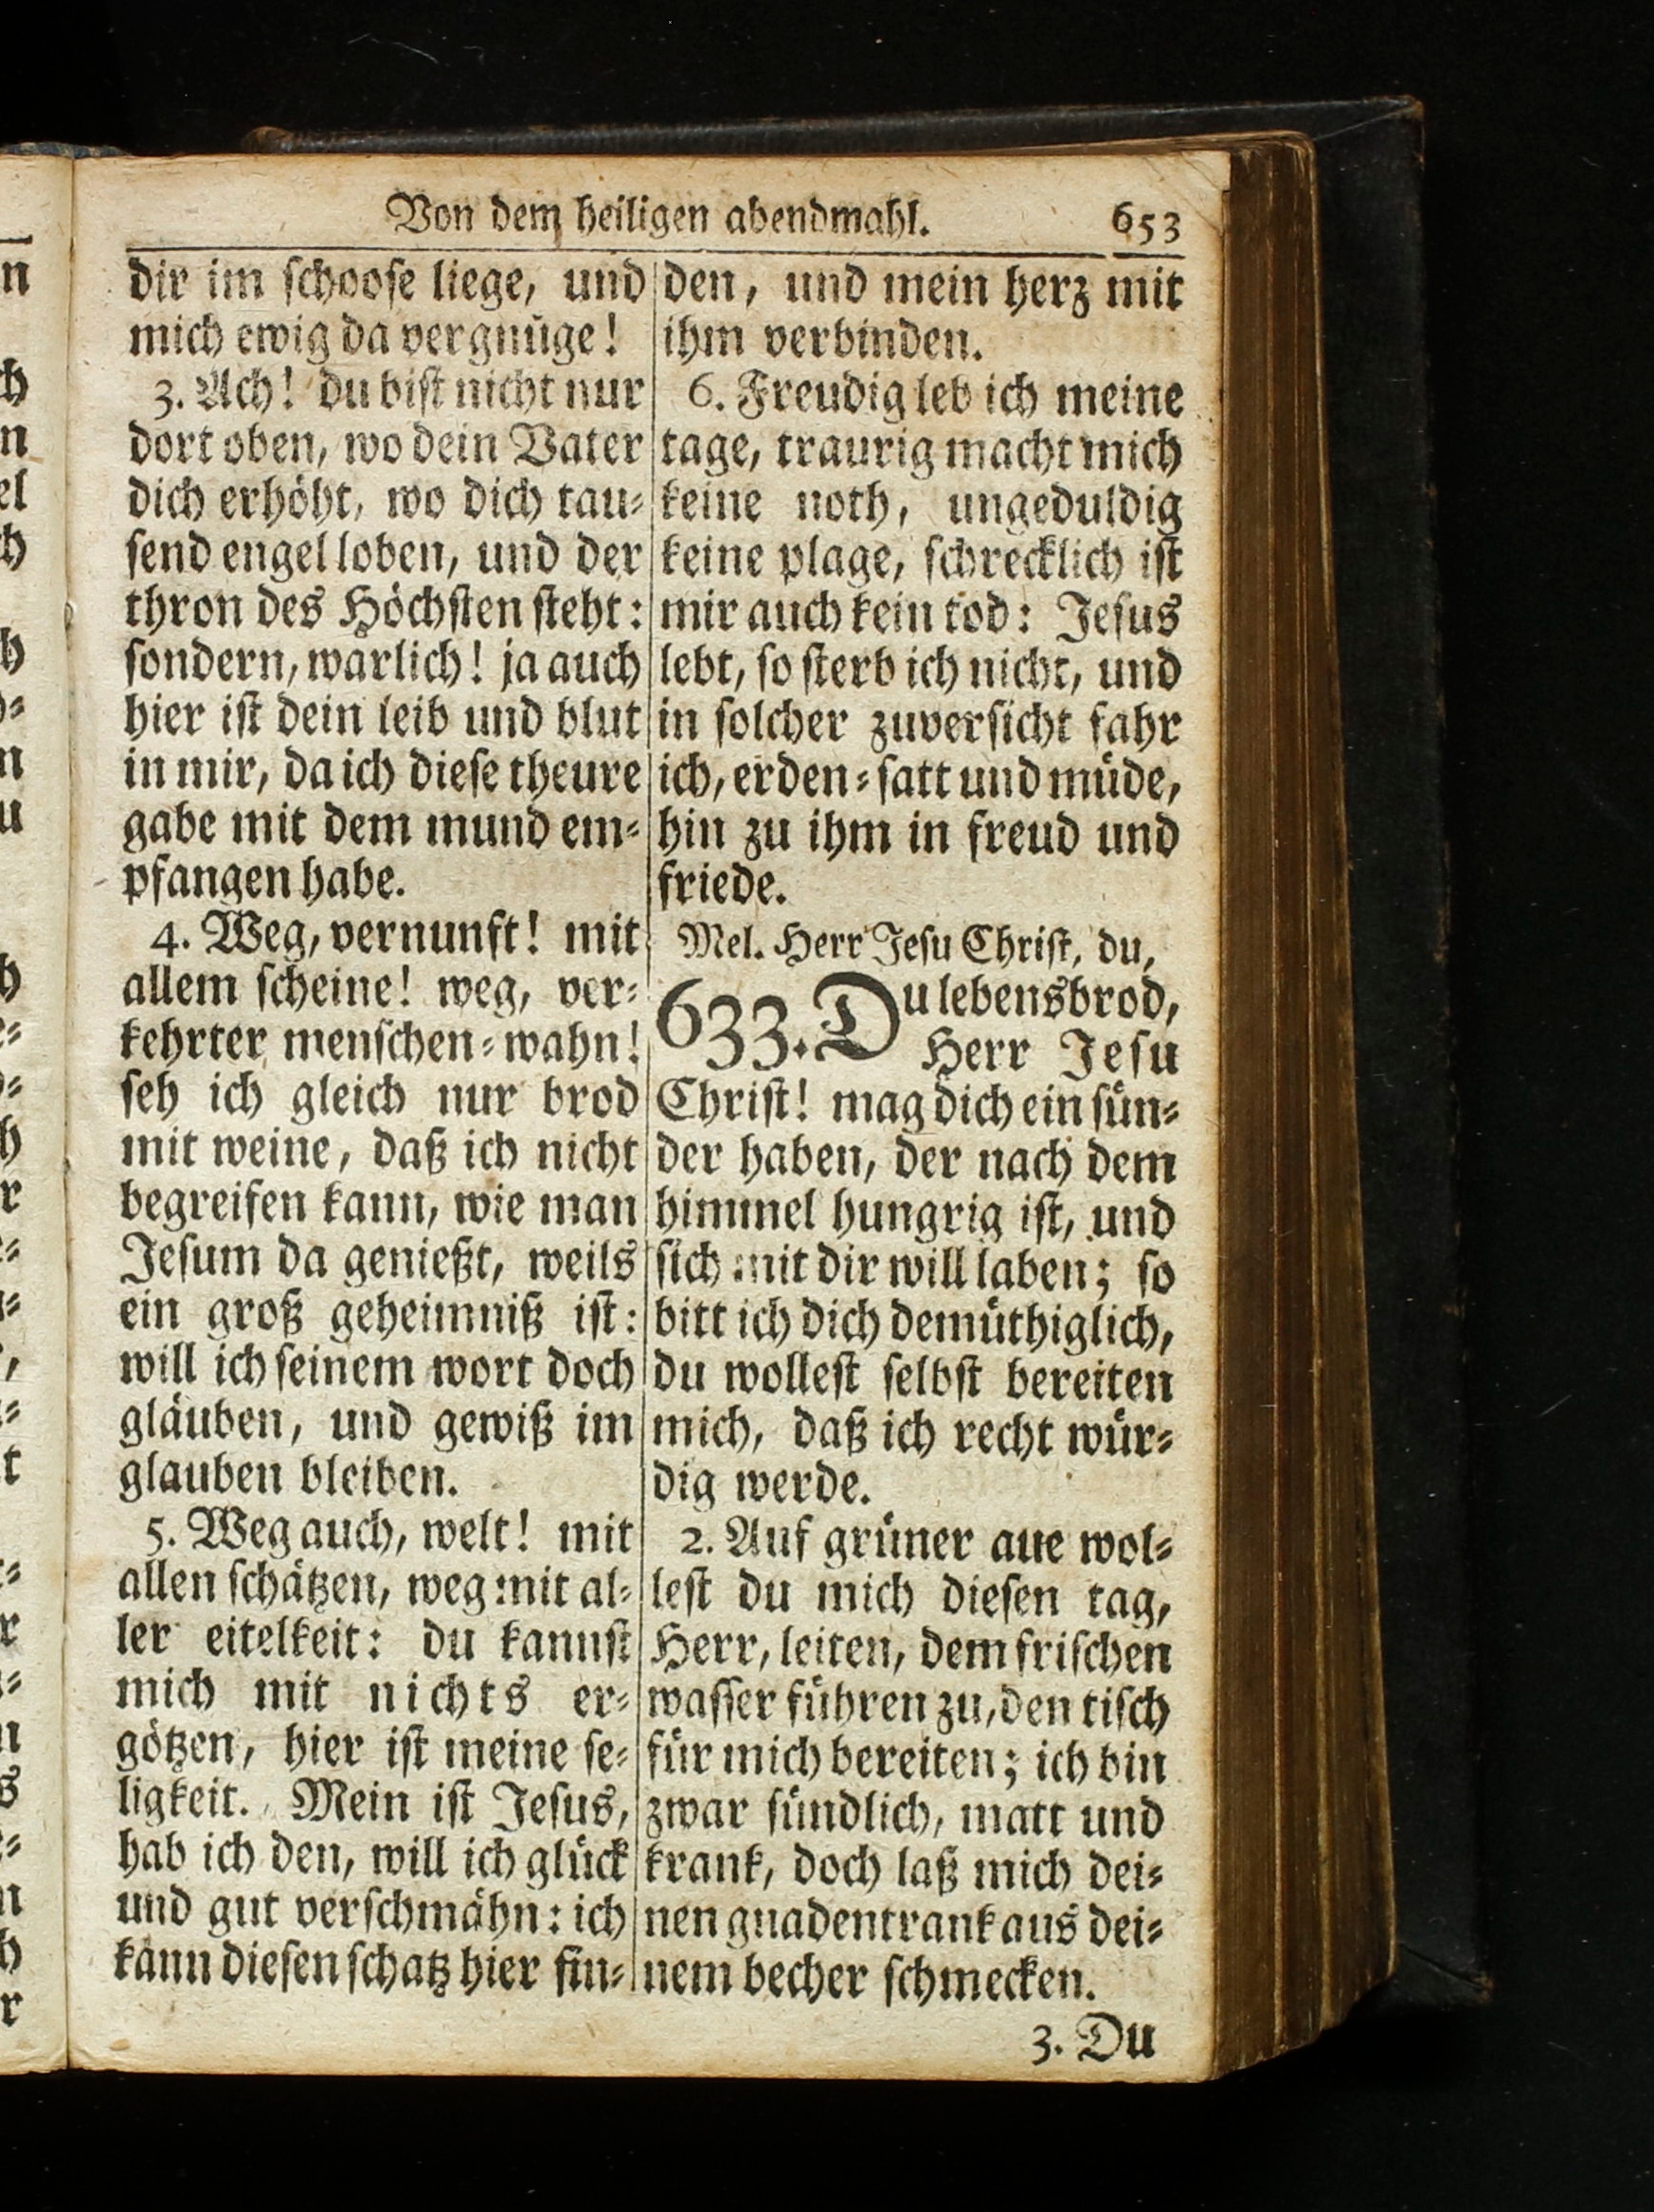 Von dem heiligen abendmahl. 653
dir im schoose liege, und
mich ewig da vergnüge!
3. Ach! du bist nicht nur
dort oben, wo dein Vater
dich erhöht, wo dich tau-
send engel loben, und der
thron des Höchsten steht:
sondern, warlich! ja auch
hier ist dein leib und blut
in mir, da ich diese theure
gabe mit dem mund em-
pfangen habe.
4. Weg, vernunft! mit
allem scheine! weg, ver-
kehrter menschen-wahn!
seh ich gleich nur brod
mit weine, daß ich nicht
begreifen kann, wie man
Jesum da genießt, weils
ein groß geheimniß ist:
will ich seinem wort doch
gläuben, und gewiß im
glauben bleiben.
5. Weg auch, welt! mit
allen schätzen, weg mit al-
ler eitelkeit: du kannst
mich mit nichts er-
götzen, hier ist meine se-
ligkeit. Mein ist Jesus,
hab ich den, will ich glück
und gut verschmähn: ich
kann diesen schatz hier fin-
den, und mein herz mit
ihm verbinden.
6. Freudig leb ich meine
tage, traurig macht mich
keine noth, ungeduldig
keine plage, schrecklich ist
mir auch kein tod: Jesus
lebt, so sterb ich nicht, und
in solcher zuversicht fahr
ich, erden-satt und müde,
hin zu ihm in freud und
friede.
Mel. Herr Jesu Christ, du,
633. Du lebensbrod,
Herr Jesu
Christ! mag dich ein sün-
der haben, der nach dem
himmel hungrig ist, und
sich mit dir will laben; so
bitt ich dich demüthiglich,
du wollest selbst bereiten
mich, daß ich recht wür-
dig werde.
2. Auf grüner aue wol-
lest du mich diesen tag,
Herr, leiten, dem frischen
wasser führen zu, den tisch
für mich bereiten; ich bin
zwar sündlich, matt und
krank, doch laß mich dei-
nen gnadentrank aus dei-
nem becher schmecken.
3. Du